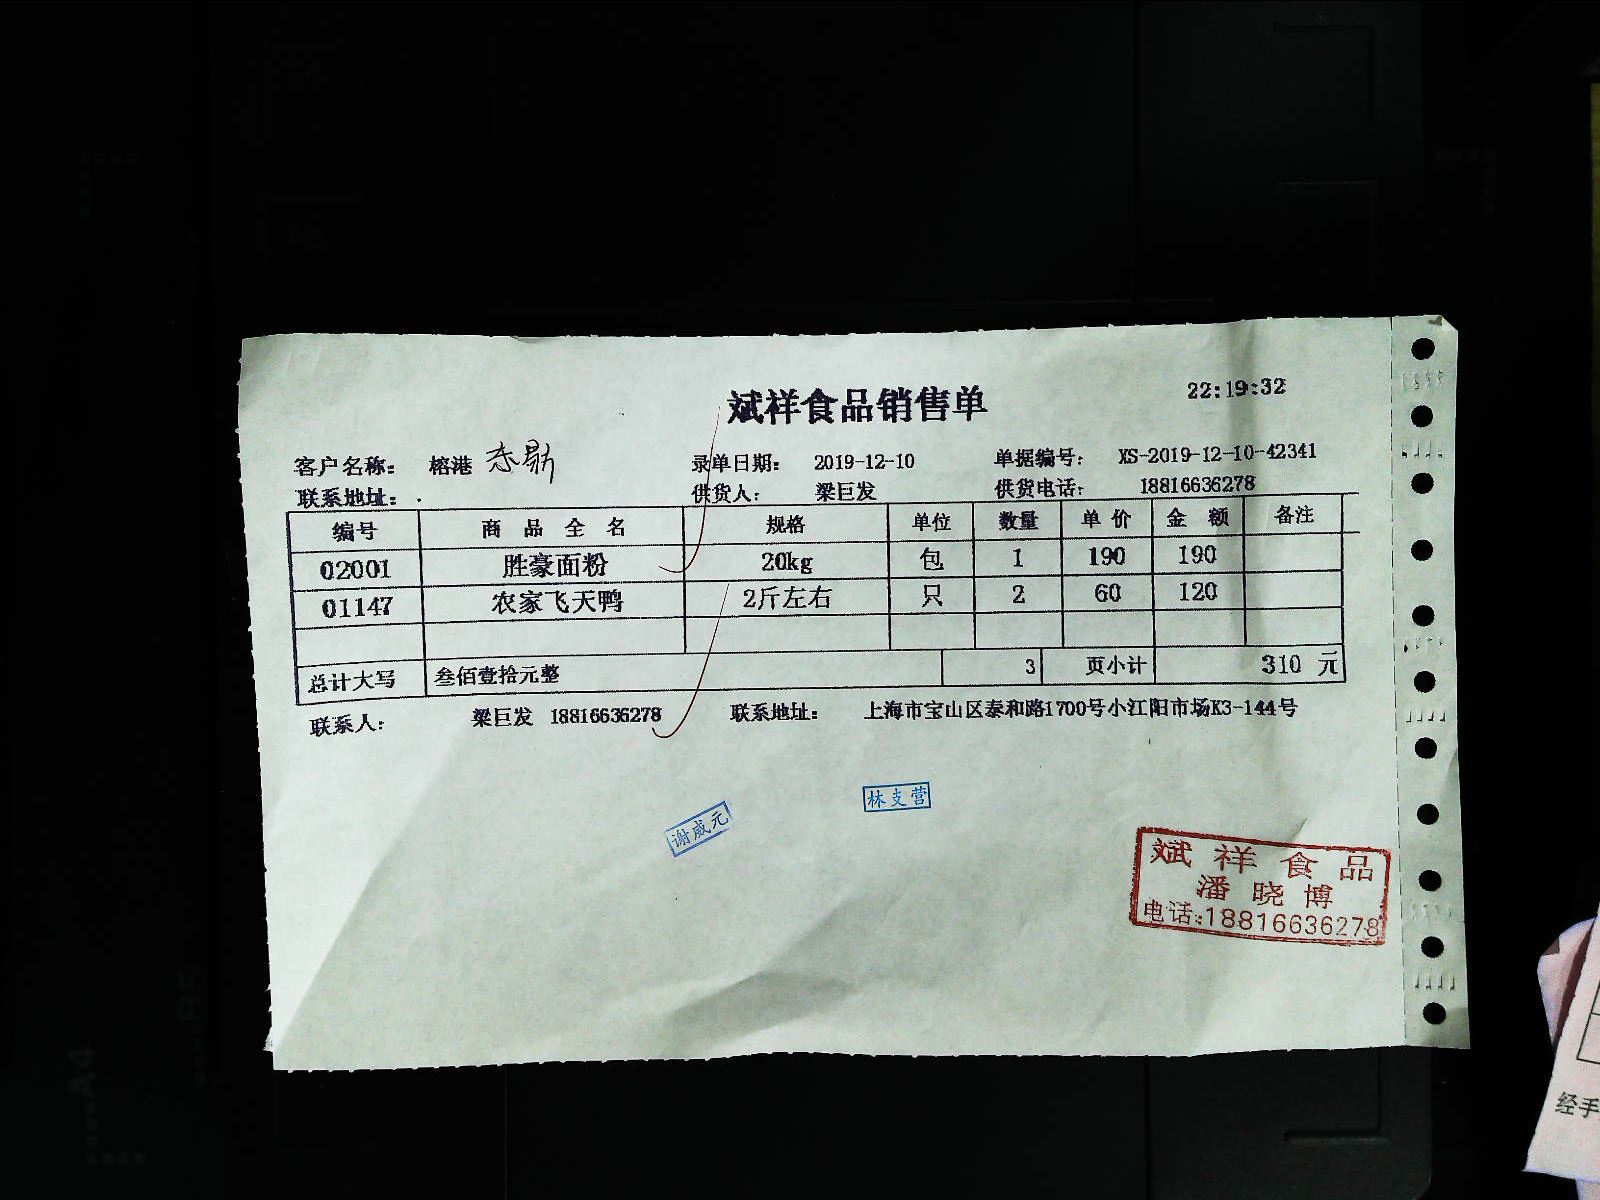 斌祥食品销售单
22:19:32
客户名称： 榕港
录单日期： 2019-12-10
单据编号： XS-2019-12-10-42341
联系地址： .
供货人： 梁巨发
供货电话： 18816636278
编号 商品全名 规格 单位 数量 单价 金额 备注
02001 胜豪面粉 20kg 包 1 190 190
01147 农家飞天鸭 2斤左右 只 2 60 120
总计大写 叁佰壹拾元整 3 页小计 310 元
联系人： 梁巨发 18816636278 联系地址： 上海市宝山区泰和路1700号小江阳市场K3-144号
林支营
谢威元
斌祥食品
潘晓博
电话:18816636278
经手
A4
B5